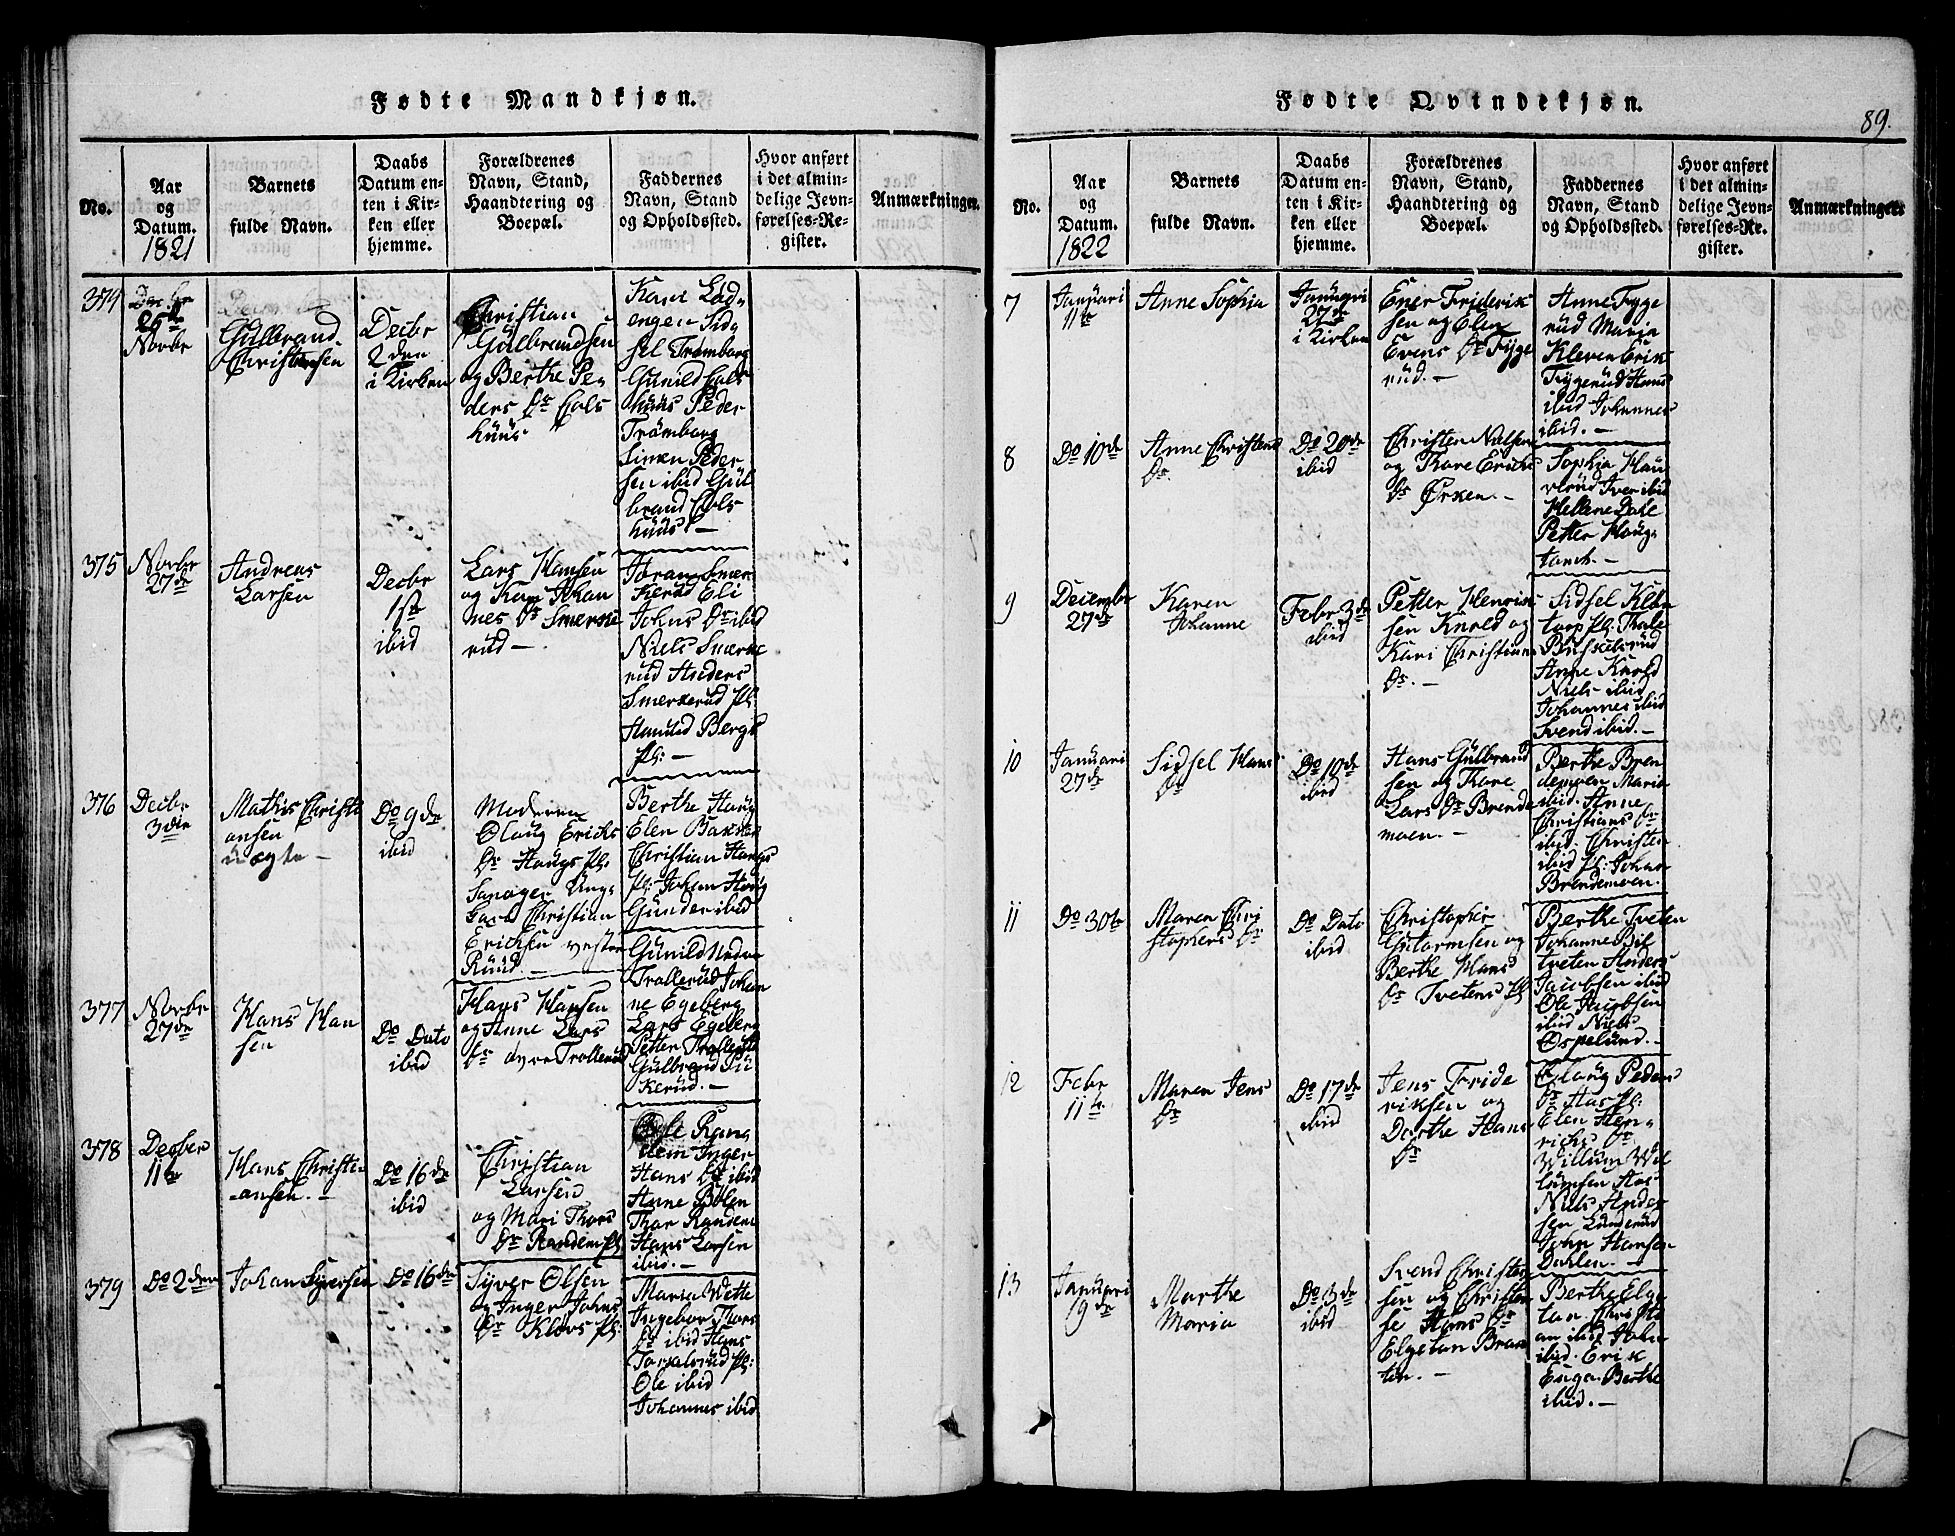 Fødte Mandkjøn.
No.
Aar
og
Datum.
1821
Barnets
fulde Navn.
Daabs
Datum en-
ten i Kir-
ken eller
hjemme.
Forældrenes
Navn, Stand,
Haandtering og
Boepæl.
Faddernes
Navn, Stand
og Opholdssted.
Hvor anført
i det almin-
delige Jevn-
førelses-Re-
gister.
Anmærkninger.
374
Norbr
Gulbrand
Christensen
Decbr
2den
i Kirken
Christian
Gulbrandsen
og Berthe Pe-
ders Dr Cols
huus
Kari
engen Sid-
sel Tromborg
Gunild Cols
huus Peder
Tromborg
Simen Peder
sen ibid Gul
brand Cols-
huus -
375
Norbr
27de
Andreas
Larsen
Decbr
1ste
ibid
Lars Hansen
og Kari Johan
nes Dr Smerke
rud -
Joran Smer
kerud Eli
Johns Dr ibid
Niels Smerke
rud Anders
Smerkerud pl:
Amund Berge
pl: -
376
Decbr
3die
Mathis Christi
ansen
uægte -
Do 9de
ibid
Moderen
Olaug Erichs
Dr Haugs pl:
Ung-
karl Christian
Erichsen vestre
Ruud. -
Berthe Haug
Elen
Christian Haugs
pl: Johan Haug
Gunder ibid
377
Norbr
27de
Hans Han
sen
Do Dato
ibid
Hans Hansen
og Anne Lars
Dr øvre Trollerud
Gunild Nedre
Trollerud Johan
ne Egeberg
Lars Egeberg
Petter Trollerud
Gulbrand Pu
kerud. -
378
Decbr
11te
Hans Christi
ansen. -
Do 16de
ibid
Christian
Larsen
og Mari Thors
Dr Randem pl:
Ran
dem Inger
Hans Dr ibid
Anne Bølen
Thor Randem
Hans Larsen
ibid. -
379
Do 2den
Johan Syversen
Do 16de
Syver Olsen
og Inger Johns
Dr Kløvs pl:
Maria Wette
Ingebor Thors
Dr ibid Hans
Torpalsrud pl:
Ole ibid
Johannes ibid
Fødte Qvindekjøn.
89.
No.
Aar
og
Datum.
1822
Barnets
fulde Navn.
Daabs
Datum en-
ten i Kir-
ken eller
hjemme.
Forældrenes
Navn, Stand,
Haandtering og
Boepæl.
Faddernes
Navn, Stand
og Opholdssted.
Hvor anført
i det almin-
delige Jevn-
førelses-Re-
gister.
Anmærkninger.
7
Januari
11te
Anne Sophia
Januari
27de
i Kirken
Ener Friderik
sen og Elen
Evens Dr Fryge
rud. -
Anne Fryge
rud Maria
Kleven Erik
Frygerud Hans
ibid Johannes
ibid. -
8
Do 10de
Anne Christens
Dr
Do 20de
ibid
Christen Nielsen
og Kare Erichs
Dr Ørken. -
Sophia Hau
Iver ibid
Hellene Dahl
Petter Haug
9
December
27de
Karen
Johanne
Febr 3de
ibid
Petter Henrik
sen Knold og
Kari Christians
Dr. -
Sidsel Kløv
pl: Kale
Buskelsrud
Anne Knold
Niels ibid
Johannes ibid
Svend ibid. -
10
Januari
27de
Sidsel Hans
Dr
Do 10de
ibid
Hans Gulbrand
sen og Kare
Lars Dr Brende
moen. -
Berthe Bren
demoen Maria
ibid. Anne
Christians Dr
ibid. Christen
ibid pl: Johan
Brendemoen.
11
Do 30te
Maren Chri
stophers Dr
Do Dato
ibid
Christopher
Guttormsen og
Berthe Hans
Dr Tvetens pl:
Berthe Tveten
Johanne Bif
tveten Anders
Jacobsen ibid
Ole Jacobsen
ibid Niels
Ospelund. -
12
Febr
11te
Maren Jens
Dr
Do 17de
ibid
Jens Fride
riksen og
Dorthe Hans
Dr
Olaug Peders
Dr Aas pl:
Elen Hen-
richs Dr
Willum Wil
lumsen Aas
Niels Ander
sen Lunderud
John Hansen
Dahlen. -
13
Januari
19de
Marthe
Maria
Do 3de
ibid
Svend Christen
sen og Christen
se Hans Dr
Elgetan Braa
ten. -
Berthe Elge
tan Christi
an ibid John
ibid. Erik
Enga. Berthe
ibid. -